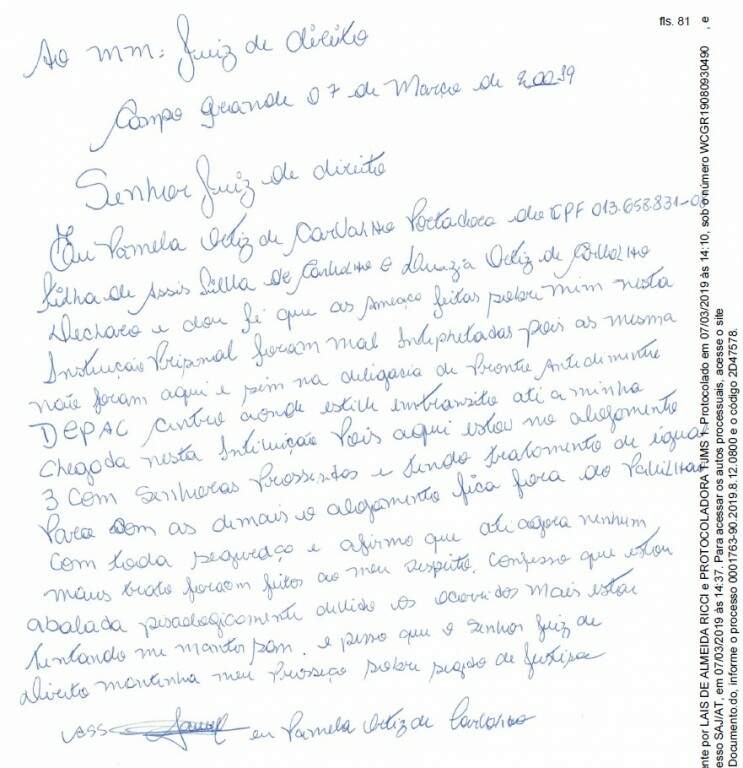 fls. 81
Ao MM: Juiz de direito
Campo grande 07 de Março de 20019
Senhor Juiz de direito
Eu Pamela Ortiz de Carvalho Portadora do CPF 013.658.831-0
filha de Assis Silha de Carvalho e Luuzia Ortiz de Carvalho
Declaro e dou fé que as Ameaço feitas sobre mim nesta
Instituição Prisional foram mal Intepretadas pois as mesma
não foram aqui e sim na deligasia de Pronte Antedimente
DEPAC Centro aonde estive emtransito até a minha
chegada nesta Intituição Pois aqui estou no alojamento
3 Com Senhoras Prossentos e tendo tratamento de igual
Para com as demais o alojamento fica fora do Pavilhão
Com toda seguraço e afirmo que até agora nenhum
maus trato foram feitos ao meu respeito. Confesso que estou
abalada pisadogicamente divido os ocorridos Mais estou
tentando me manter sam. e pesso que o senhor Juiz de
direito mantenha meu Prosseço sobre segedo de justiça
ASS eu Pamela Ortiz de Carvalho
nte por LAIS DE ALMEIDA RICCI e PROTOCOLADORA TJMS 1. Protocolado em 07/03/2019 às 14:10, sob o número WCGR19080930490 , e
esso SAJ/AT, em 07/03/2019 às 14:37. Para acessar os autos processuais, acesse o site
Documento.do, informe o processo 0001763-90.2019.8.12.0800 e o código 2D47578.